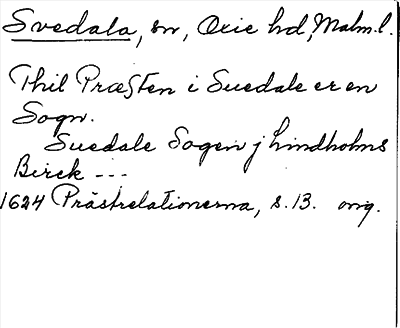 Svedala, sn, Oxie hd, Malm.l.
Thil Præsten i Suedale er en
Sogn.
Suedale Sogen j Lindholms
Birck ---
1624 Prästrelationerna, s. 13. orig.